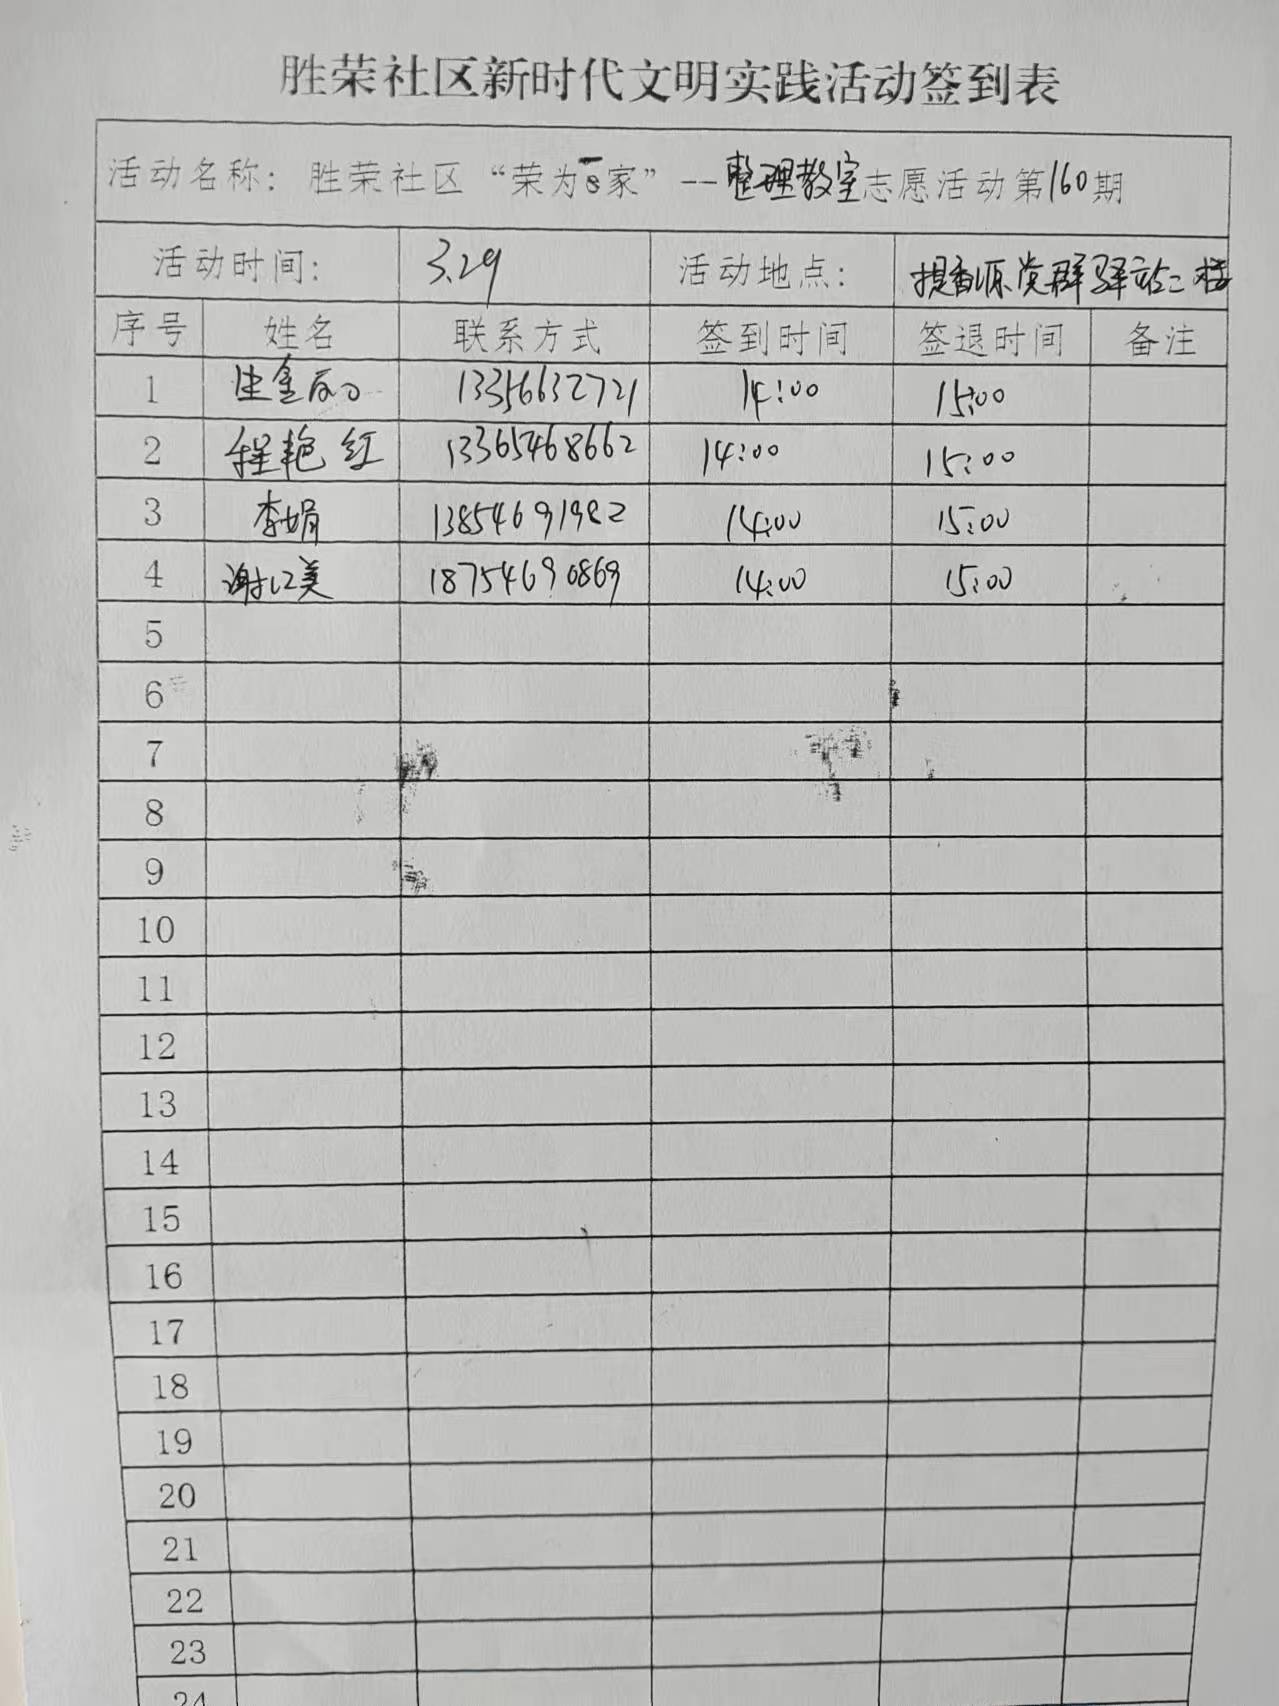 胜荣社区新时代文明实践活动签到表
活动名称：胜荣社区“荣为e家”--整理教室志愿活动第160期
活动时间： 3.29 活动地点： 提香源党群驿站二楼
序号 姓名 联系方式 签到时间 签退时间 备注
1 13356632721 14:00 15:00
2 程艳红 13365468662 14:00 15:00
3 李娟 13854691982 14:00 15:00
4 谢江美 18754690869 14:00 15:00
5
6
7
8
9
10
11
12
13
14
15
16
17
18
19
20
21
22
23
24